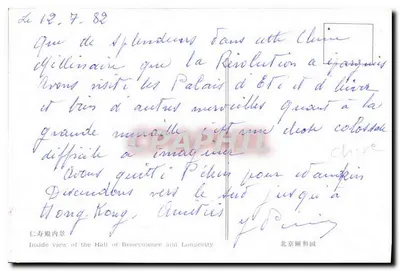 Le 12.7.82
Que de splendeurs dans cette Chine
Millénaire que la Révolution a épargnées
Avons visité les Palais d'Eté et d'hiver
et bien d'autres merveilles quant à la
grande muraille c'est une chose colossale
difficile à imaginer
Avons quitté Pékin pour
Descendons vers le sud jusqu'à
Hong Kong. Amitiés
仁寿殿内景
Inside view of the Hall of Benevolence and Longevity
北京颐和园